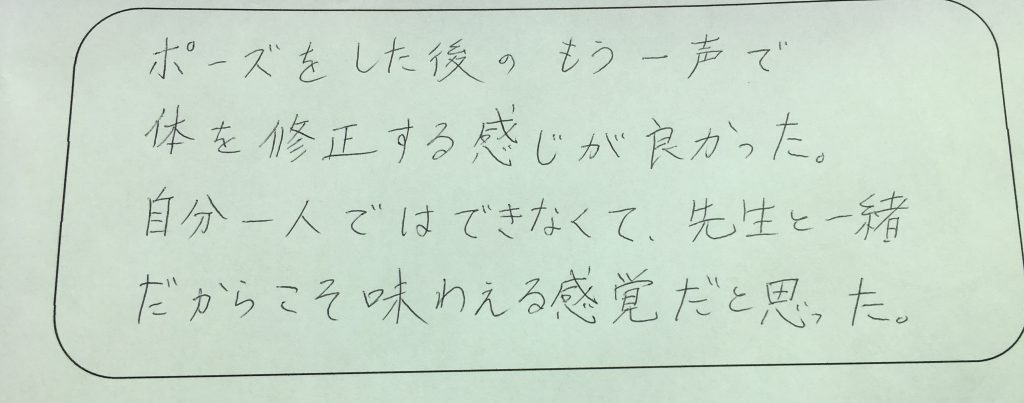 ポーズをした後のもう一声で
体を修正する感じが良かった。
自分一人ではできなくて、先生と一緒
だからこそ味わえる感覚だと思った。